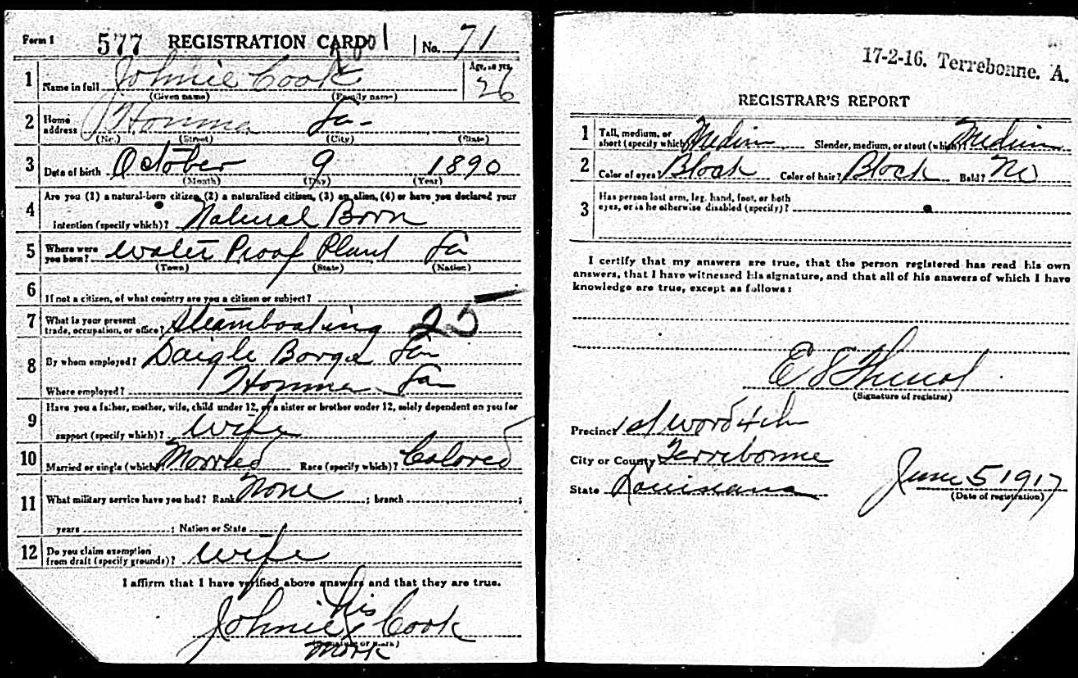 Form 1 577 REGISTRATION CARD No. 71
1 Name in full Johnie Cook Age, in yrs. 26
(Given name) (Family name)
2 Home address Houma La-
(No.) (Street) (City) (State)
3 Date of birth October 9 1890
(Month) (Day) (Year)
Are you (1) a natural-born citizen, (2) a naturalized citizen, (3) an alien, (4) or have you declared your
4 intention (specify which)? Natural Born
5 Where were you born? Water Proof Plant La
(Town) (State) (Nation)
6 If not a citizen, of what country are you a citizen or subject?
7 What is your present trade, occupation, or office? Steamboating 25
8 By whom employed? Daigle Barge La
Where employed? Houma La
9 Have you a father, mother, wife, child under 12, or a sister or brother under 12, solely dependent on you for
support (specify which)? wife
10 Married or single (which)? Married Race (specify which)? Colored
11 What military service have you had? Rank None ; branch ;
years ; Nation or State
12 Do you claim exemption from draft (specify grounds)? wife
I affirm that I have verified above answers and that they are true.
his
Johnie X Cook
(Signature or mark)
mark
17-2-16. Terrebonne. A.
REGISTRAR'S REPORT
1 Tall, medium, or short (specify which)? Medium Slender, medium, or stout (which)? Medium
2 Color of eyes? Black Color of hair? Black Bald? No
3 Has person lost arm, leg, hand, foot, or both eyes, or is he otherwise disabled (specify)?
I certify that my answers are true, that the person registered has read his own
answers, that I have witnessed his signature, and that all of his answers of which I have
knowledge are true, except as follows:
(Signature of registrar)
Precinct 1st Ward 4th
City or County Terrebonne
State Louisiana June 5 1917
(Date of registration)